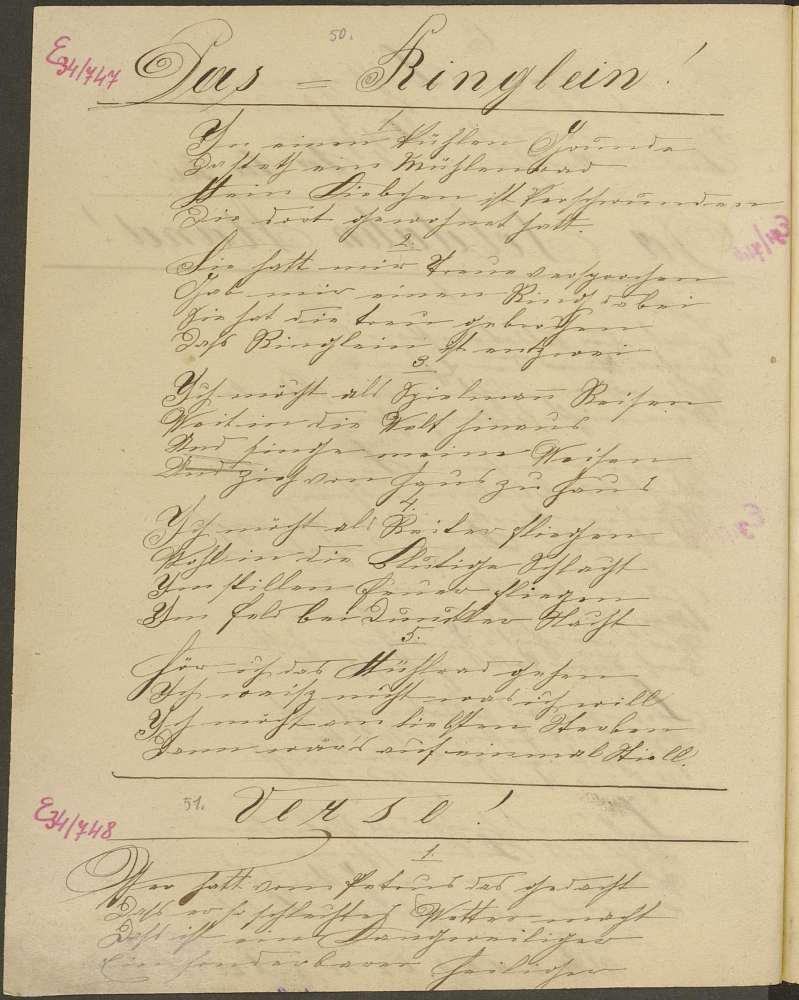 50.
E34/747
Das = Ringlein!
1.
In einem kühlen Grunde
Da steth ein Mühlenrad
Mein Liebchen ist Verschwunden
Die dort gewohnet hatt.
2.
Sie hatt mir Treue versprochen
Gab mir einen Ring dabei
Sie hat die treu gebrochen
Das Ringlein ist entzwei
3.
Ich möcht als Spielmann Reisen
Weit in die Welt hinaus
Und singe meine Weisen
Und zieh von Haus zu Haus
4.
Ich möcht als Reiter fliegen
Wohl in die Blutige Schlacht
Um stillen Feuer fliegen
Im Feld bei Dunckler Nacht
5.
Hör ich das Mühlrad gehen
Ich waisz nicht was ich will
Ich möcht am liebsten Sterben
Dann wär's auf einmal Still.
E34/748
51. Verse!
1.
Wer hatt vom Petrus das gedacht
Dass er so schlechtes Wetter macht
Dass ist ein Langweiliger
Ein sonderbarer Heiliger